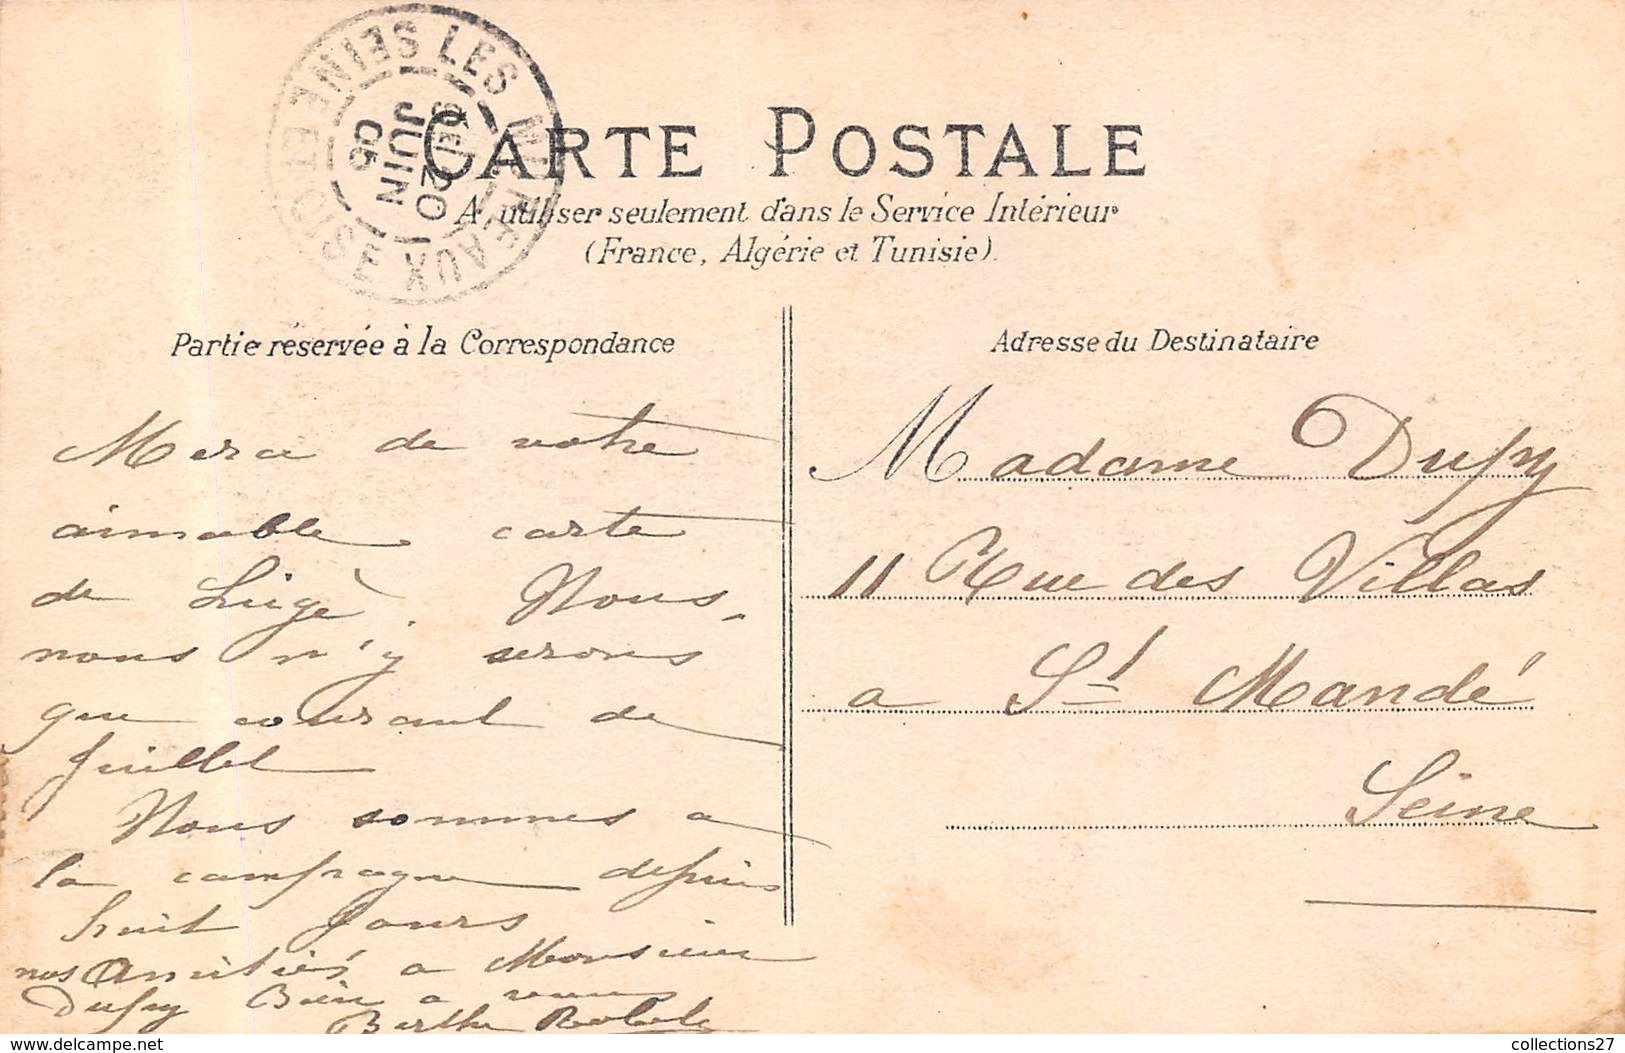 CARTE POSTALE
A utiliser seulement dans le Service Intérieur
(France, Algérie et Tunisie).
LES MUREAUX
SEINE ET OISE
20
JUIN
05
Partie réservée à la Correspondance
Merci de votre
aimable carte
de Liège. Nous
nous n'y serons
que courant de
Juillet
Nous sommes a
la campagne depuis
huit jours
nos Amitiés a Monsieur
Dufry Bien a vous
Berthe
Adresse du Destinataire
Madame Dufry
11 Rue des Villas
a St Mandé
Seine
delcampe.net
collections27